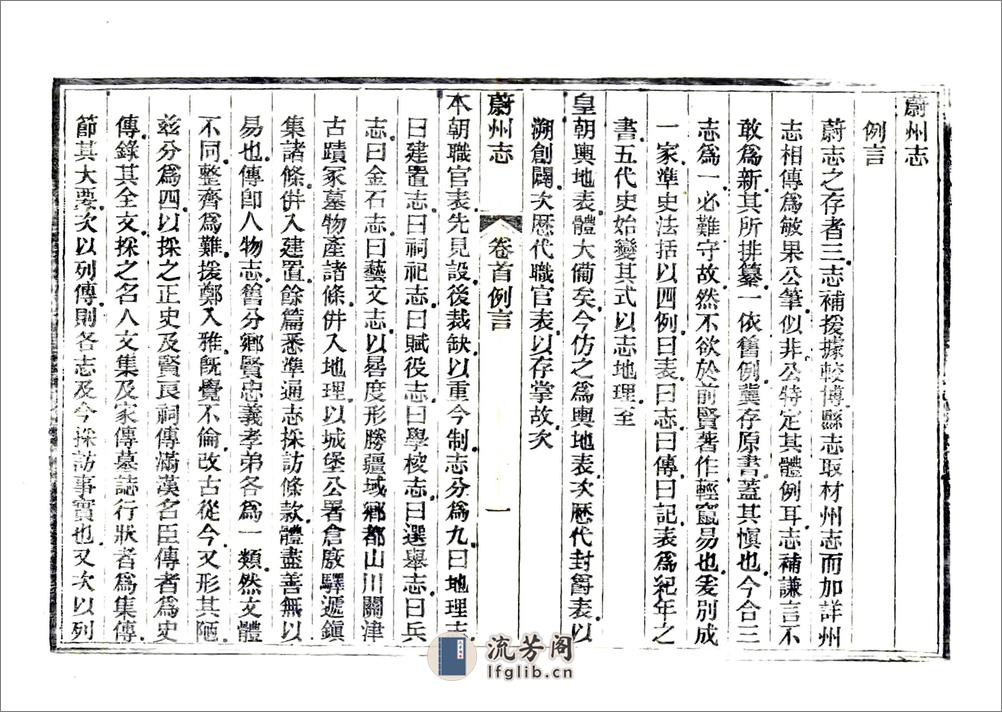 蔚州志
例言
蔚志之存者三志補援據較博縣志取材州志而加詳州
志相傳爲敏果公筆似非公特定其體例耳志補謙言不
敢爲新其所排纂一依舊例冀存原書蓋其愼也今合三
志爲一必難守故然不欲於前賢著作輕竄易也爰別成
一家準史法括以四例曰表曰志曰傳曰記表爲紀年之
書五代史始變其式以志地理至
皇朝輿地表體大備矣今仿之爲輿地表次歷代封爵表以
溯創闢次歷代職官表以存掌故次
蔚州志
卷首例言
一
本朝職官表先見設後裁缺以重今制志分爲九曰地理志
曰建置志曰祠祀志曰賦役志曰學校志曰選舉志曰兵
志曰金石志曰藝文志以晷度形勝疆域鄉都山川關津
古蹟冢墓物產諸條併入地理以城堡公署倉廒驛遞鎭
集諸條併入建置餘篇悉準通志採訪條款體盡善無以
易也傳卽人物志舊分鄉賢忠義孝弟各爲一類然文體
不同整齊爲難援鄭入雅旣覺不倫改古從今又形其陋
玆分爲四以採之正史及賢良祠傳滿漢名臣傳者爲史
傳錄其全文採之名人文集及家傳墓誌行狀者爲集傳
節其大要次以列傳則各志及今採訪事實也又次以列
流芳阁
lfglib.cn